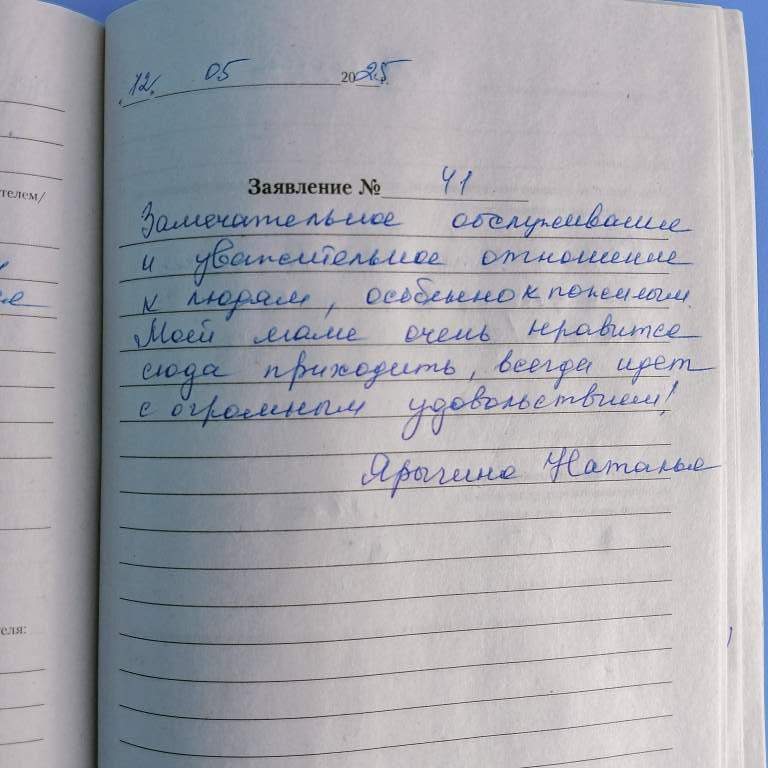 12. 05 2025
Заявление № 41
Замечательное обслуживание
и уважительное отношение
к людям, особенно к пожилым.
Моей маме очень нравится
сюда приходить, всегда идет
с огромным удовольствием!
Ярыгина Наталья
телем/
еля: